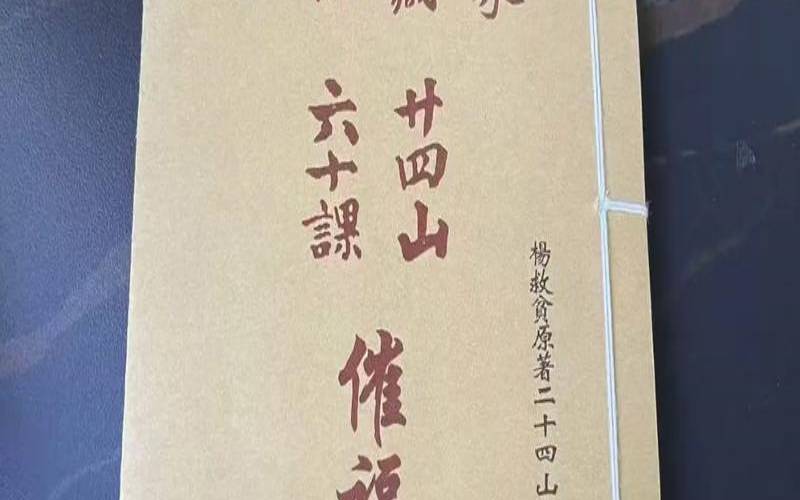 楊救貧原著二十四山
廿四山
六十課
催福